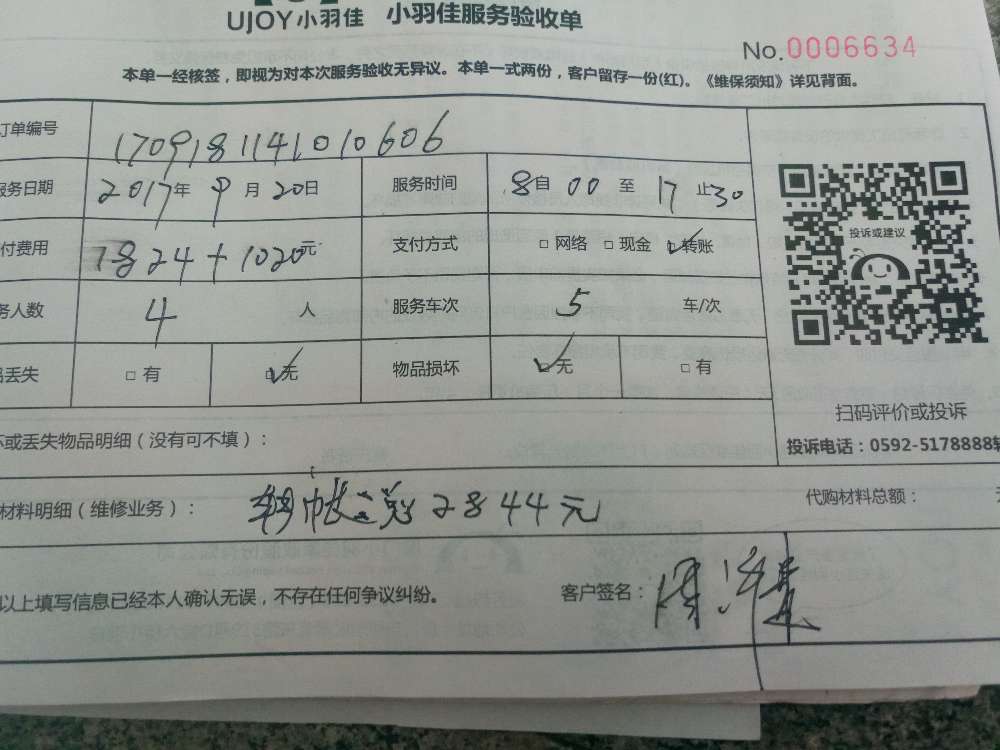 UJOY小羽佳 小羽佳服务验收单
No.0006634
本单一经核签，即视为对本次服务验收无异议。本单一式两份，客户留存一份(红)。《维保须知》详见背面。
订单编号 170918114101 0606
服务日期 2017年 9月 20日 服务时间 8自00至17止30
付费用 1824+1020元 支付方式 □网络 □现金 ☑转账
务人数 4 人 服务车次 5 车/次
品丢失 □有 ☑无 物品损坏 ☑无 □有
投诉或建议
扫码评价或投诉
投诉电话：0592-5178888转
坏或丢失物品明细（没有可不填）：
材料明细（维修业务）： 转帐 2844元 代购材料总额：
以上填写信息已经本人确认无误，不存在任何争议纠纷。 客户签名：